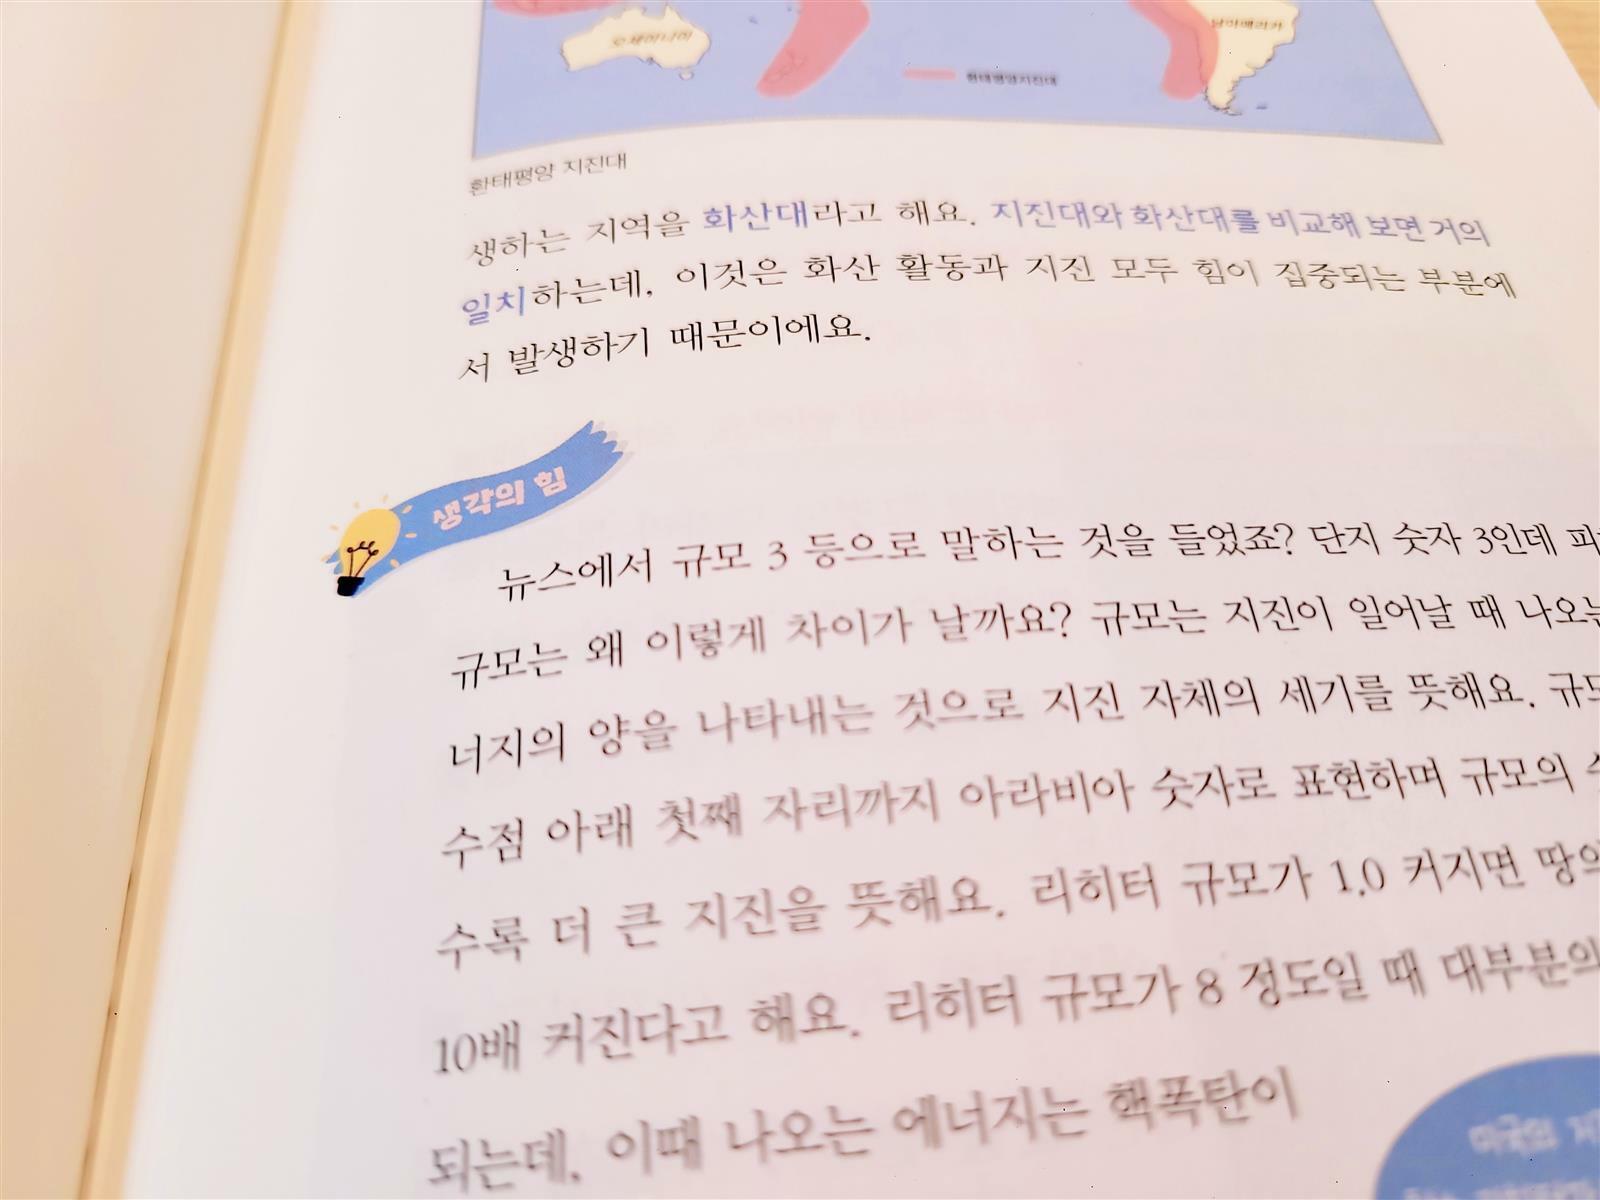 오세아니아
남아메리카
환태평양지진대
환태평양 지진대
생하는 지역을 화산대라고 해요. 지진대와 화산대를 비교해 보면 거의
일치하는데, 이것은 화산 활동과 지진 모두 힘이 집중되는 부분에
서 발생하기 때문이에요.
생각의 힘
뉴스에서 규모 3 등으로 말하는 것을 들었죠? 단지 숫자 3인데
규모는 왜 이렇게 차이가 날까요? 규모는 지진이 일어날 때 나오는
너지의 양을 나타내는 것으로 지진 자체의 세기를 뜻해요.
수점 아래 첫째 자리까지 아라비아 숫자로 표현하며 규모의
수록 더 큰 지진을 뜻해요. 리히터 규모가 1.0 커지면 땅의
10배 커진다고 해요. 리히터 규모가 8 정도일 때 대부분의
되는데, 이때 나오는 에너지는 핵폭탄이
미국의